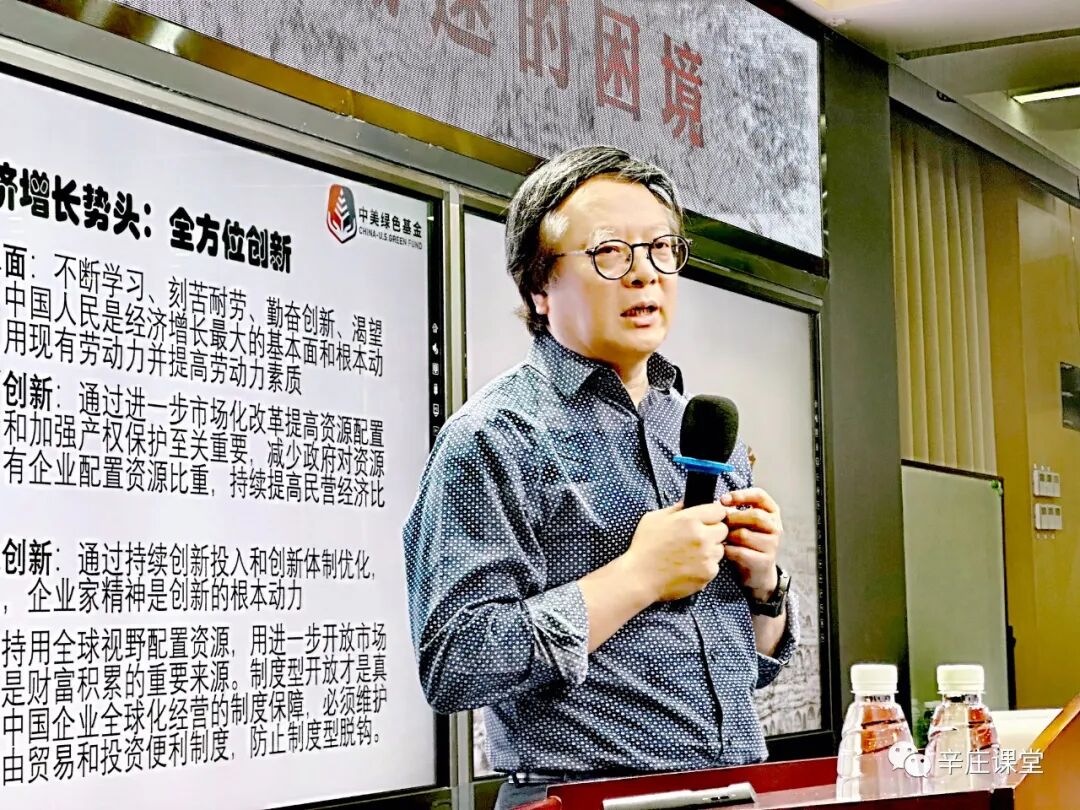 的困境
济增长势头：全方位创新
中美绿色基金
CHINA-U.S. GREEN FUND
面：不断学习、刻苦耐劳、勤奋创新、渴望
中国人民是经济增长最大的基本面和根本动
用现有劳动力并提高劳动力素质
创新：通过进一步市场化改革提高资源配置
和加强产权保护至关重要，减少政府对资源
有企业配置资源比重，持续提高民营经济比
创新：通过持续创新投入和创新体制优化，
，企业家精神是创新的根本动力
持用全球视野配置资源，用进一步开放市场
是财富积累的重要来源。制度型开放才是真
中国企业全球化经营的制度保障，必须维护
由贸易和投资便利制度，防止制度型脱钩。
辛庄课堂